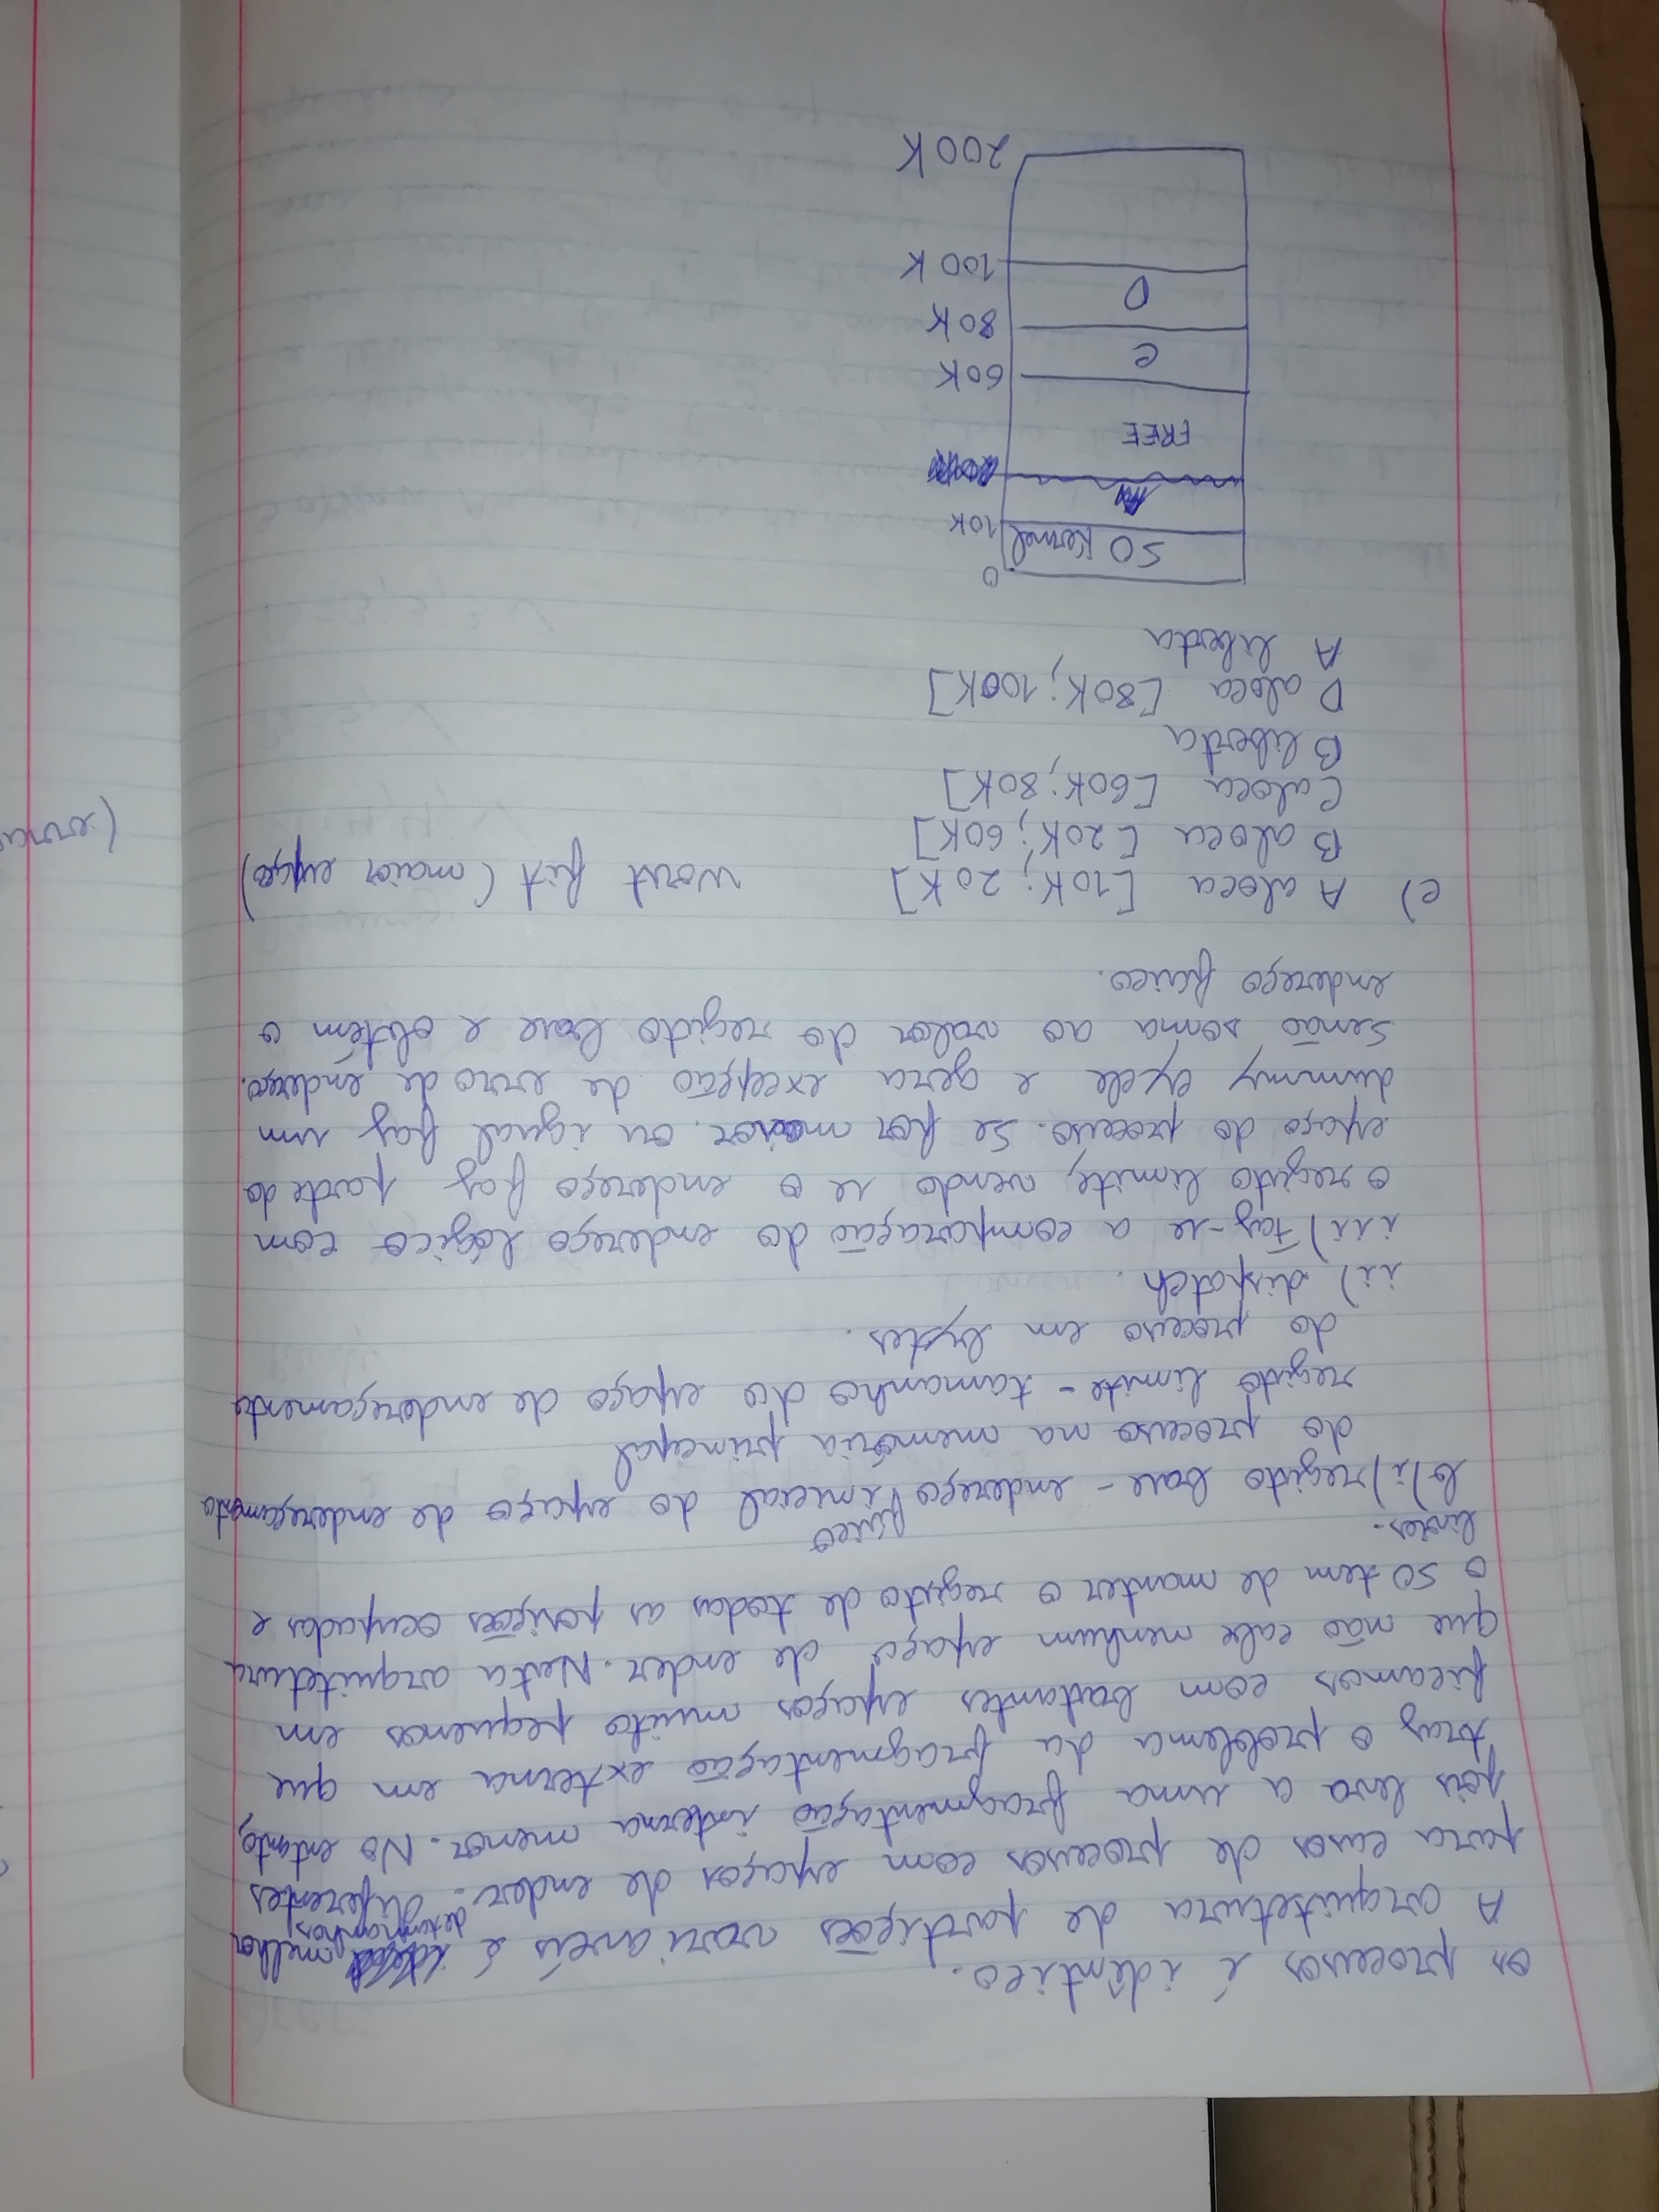 os processos é idêntico.
A arquitetura de partições variavéis é melhor
de tamanhos
para casos de processos com espaços de ender. diferentes
pois leva a uma fragmentação interna menor. No entanto,
traz o problema da fragmentação externa em que
ficamos com bastantes espaços muito pequenos em
que não cabe nenhum espaço de ender. Nesta arquitetura
o SO tem de manter o registo de todas as posições ocupadas e
livres.
físico
b) i) registo base - endereço inicial do espaço de endereçamento
do processo na memória principal
registo limite - tamanho do espaço de endereçamento
do processo em bytes.
ii) dispatch.
iii) Faz-se a comparação do endereço lógico com
o registo limite, vendo se o endereço faz parte do
espaço do processo. Se for maior ou igual faz um
dummy cycle e gera excepção de erro de endereço.
Senão soma ao valor do registo base e obtém o
endereço físico.
c) A aloca [10K; 20K] Worst fit (maior espaço)
B aloca [20K; 60K]
C aloca [60K; 80K]
(erra
B liberta
D aloca [80K; 100K]
A liberta
0
SO Kernel
10K
FREE
60K
C
80K
D
100K
200K